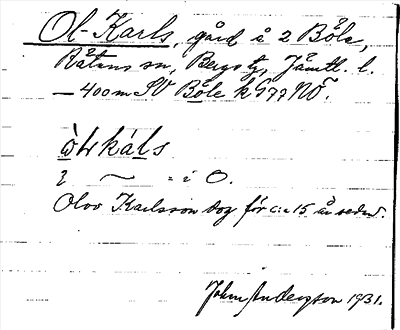 Ol-Karls, gård å 2 Böle,
Råtans sn, Bergs tg, Jämtl. l.
— 400 m SV Böle k 577 NÖ.
òɫkáls
= i O.
Olov Karlsson dog för c:a 15 år sedan.
John Anderzson 1931.